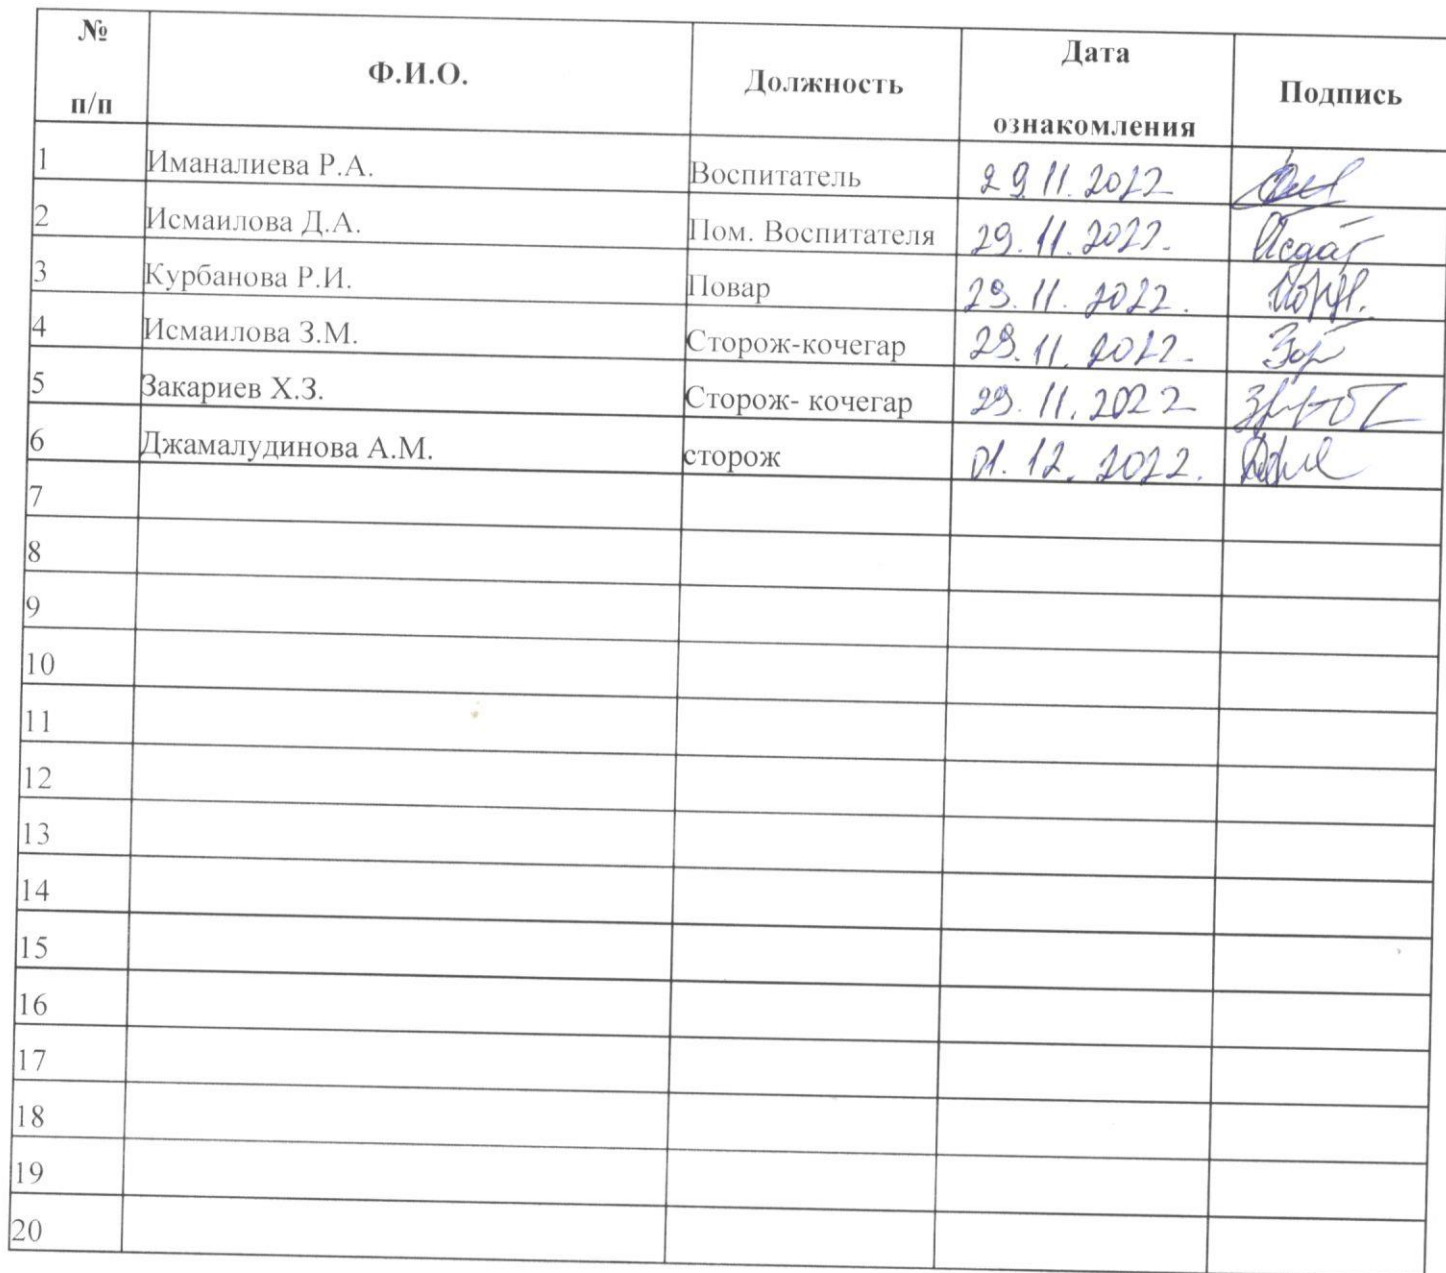 № п/п Ф.И.О. Должность Дата ознакомления Подпись
1 Иманалиева Р.А. Воспитатель 29.11.2022
2 Исмаилова Д.А. Пом. Воспитателя 29.11.2022.
3 Курбанова Р.И. Повар 29.11.2022.
4 Исмаилова З.М. Сторож-кочегар 29.11.2022.
5 Закариев Х.З. Сторож- кочегар 29.11.2022
6 Джамалудинова А.М. сторож 01.12.2022.
7
8
9
10
11
12
13
14
15
16
17
18
19
20